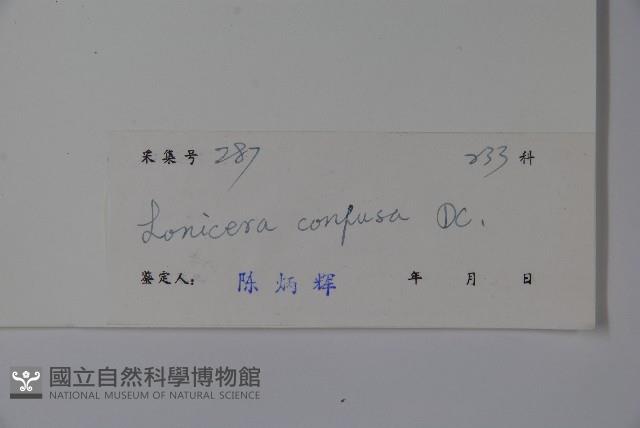 采集号 287 233 科
Lonicera confusa DC.
鉴定人： 陈炳辉 年 月 日
國立自然科學博物館
NATIONAL MUSEUM OF NATURAL SCIENCE